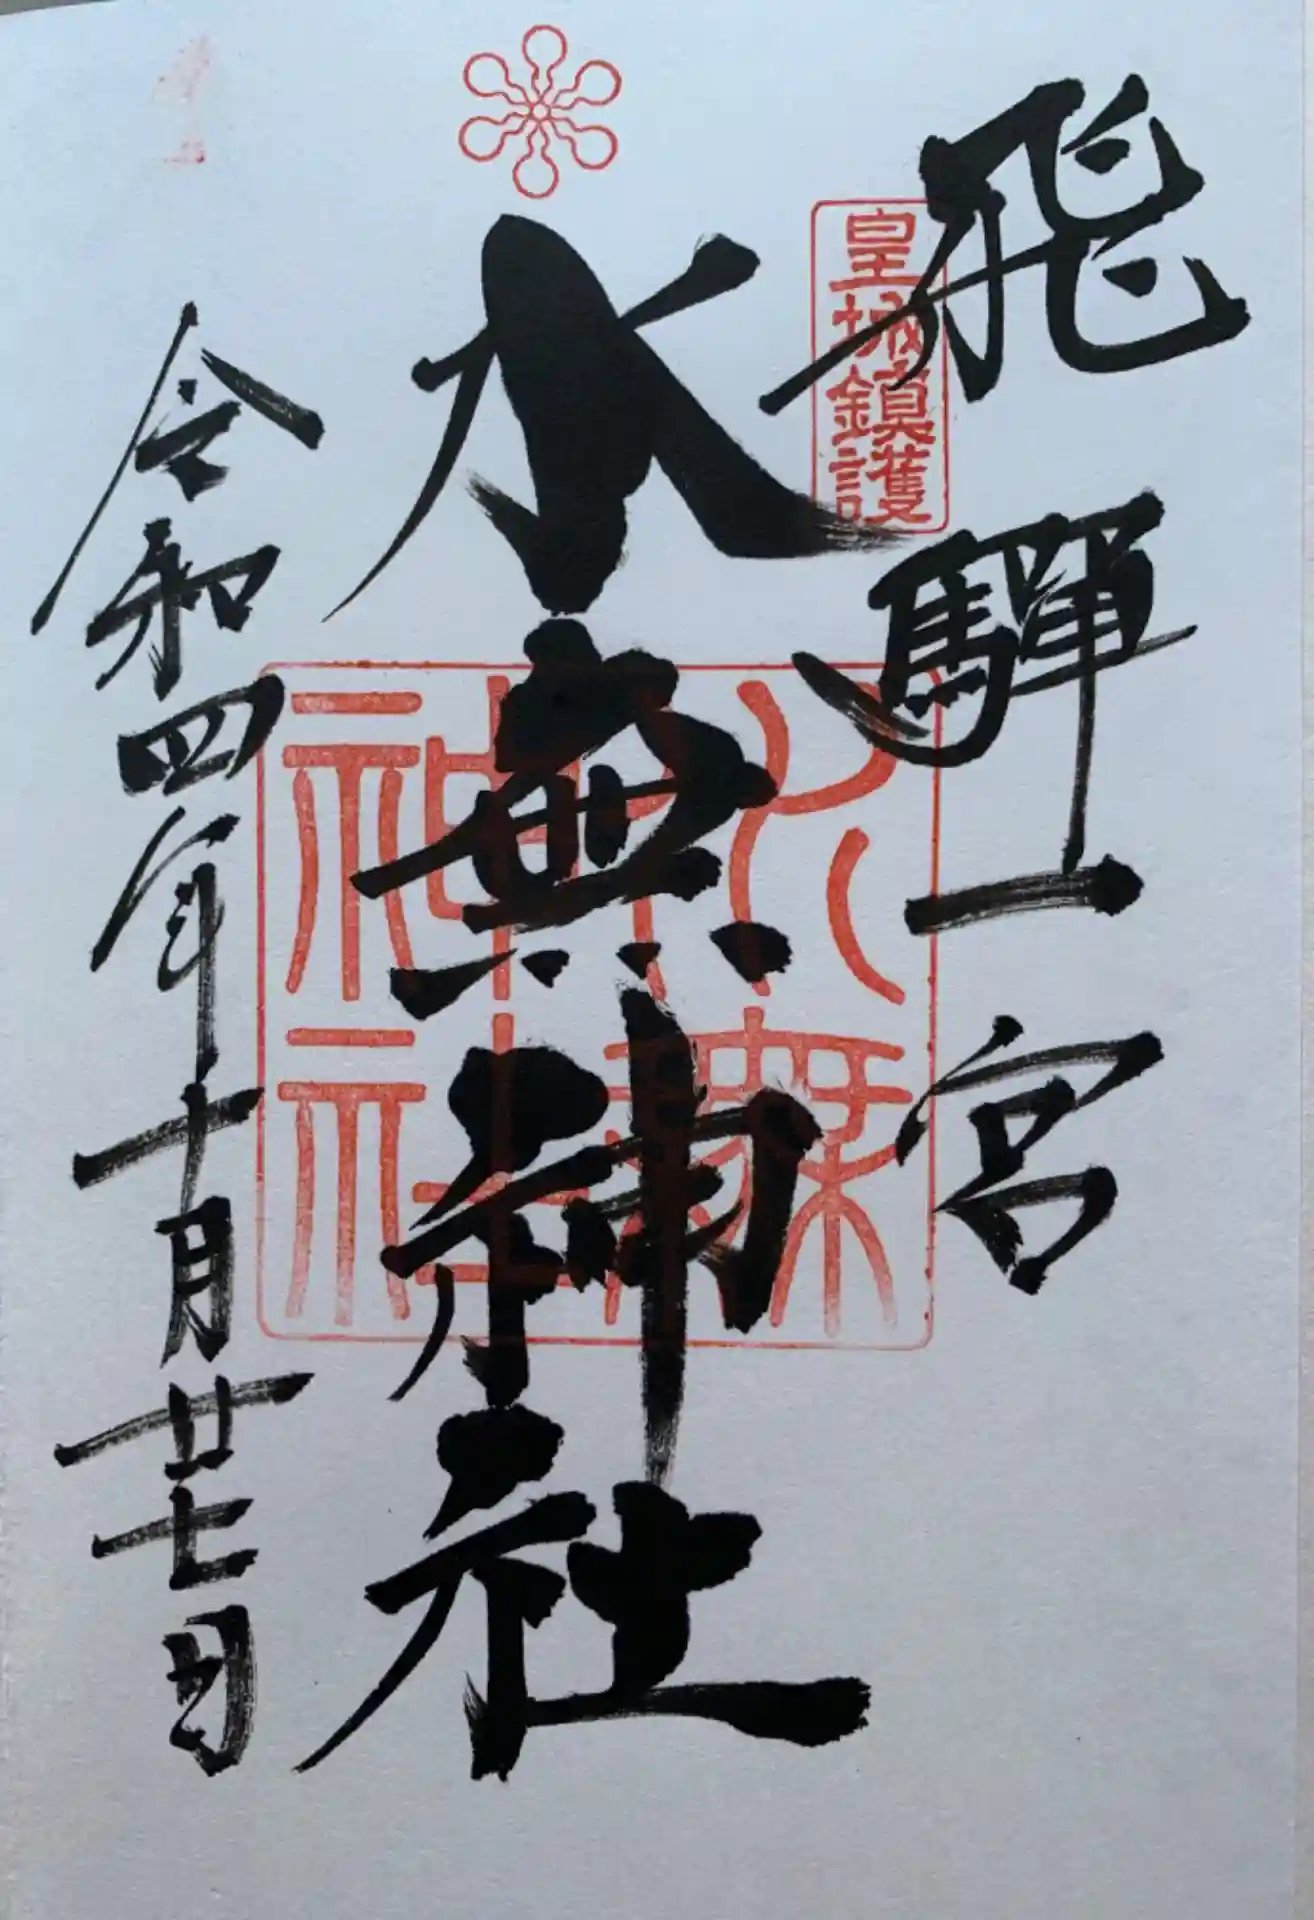 飛驒一宮
皇城鎮護
水無神社
水無神社
令和四年十月廿七日